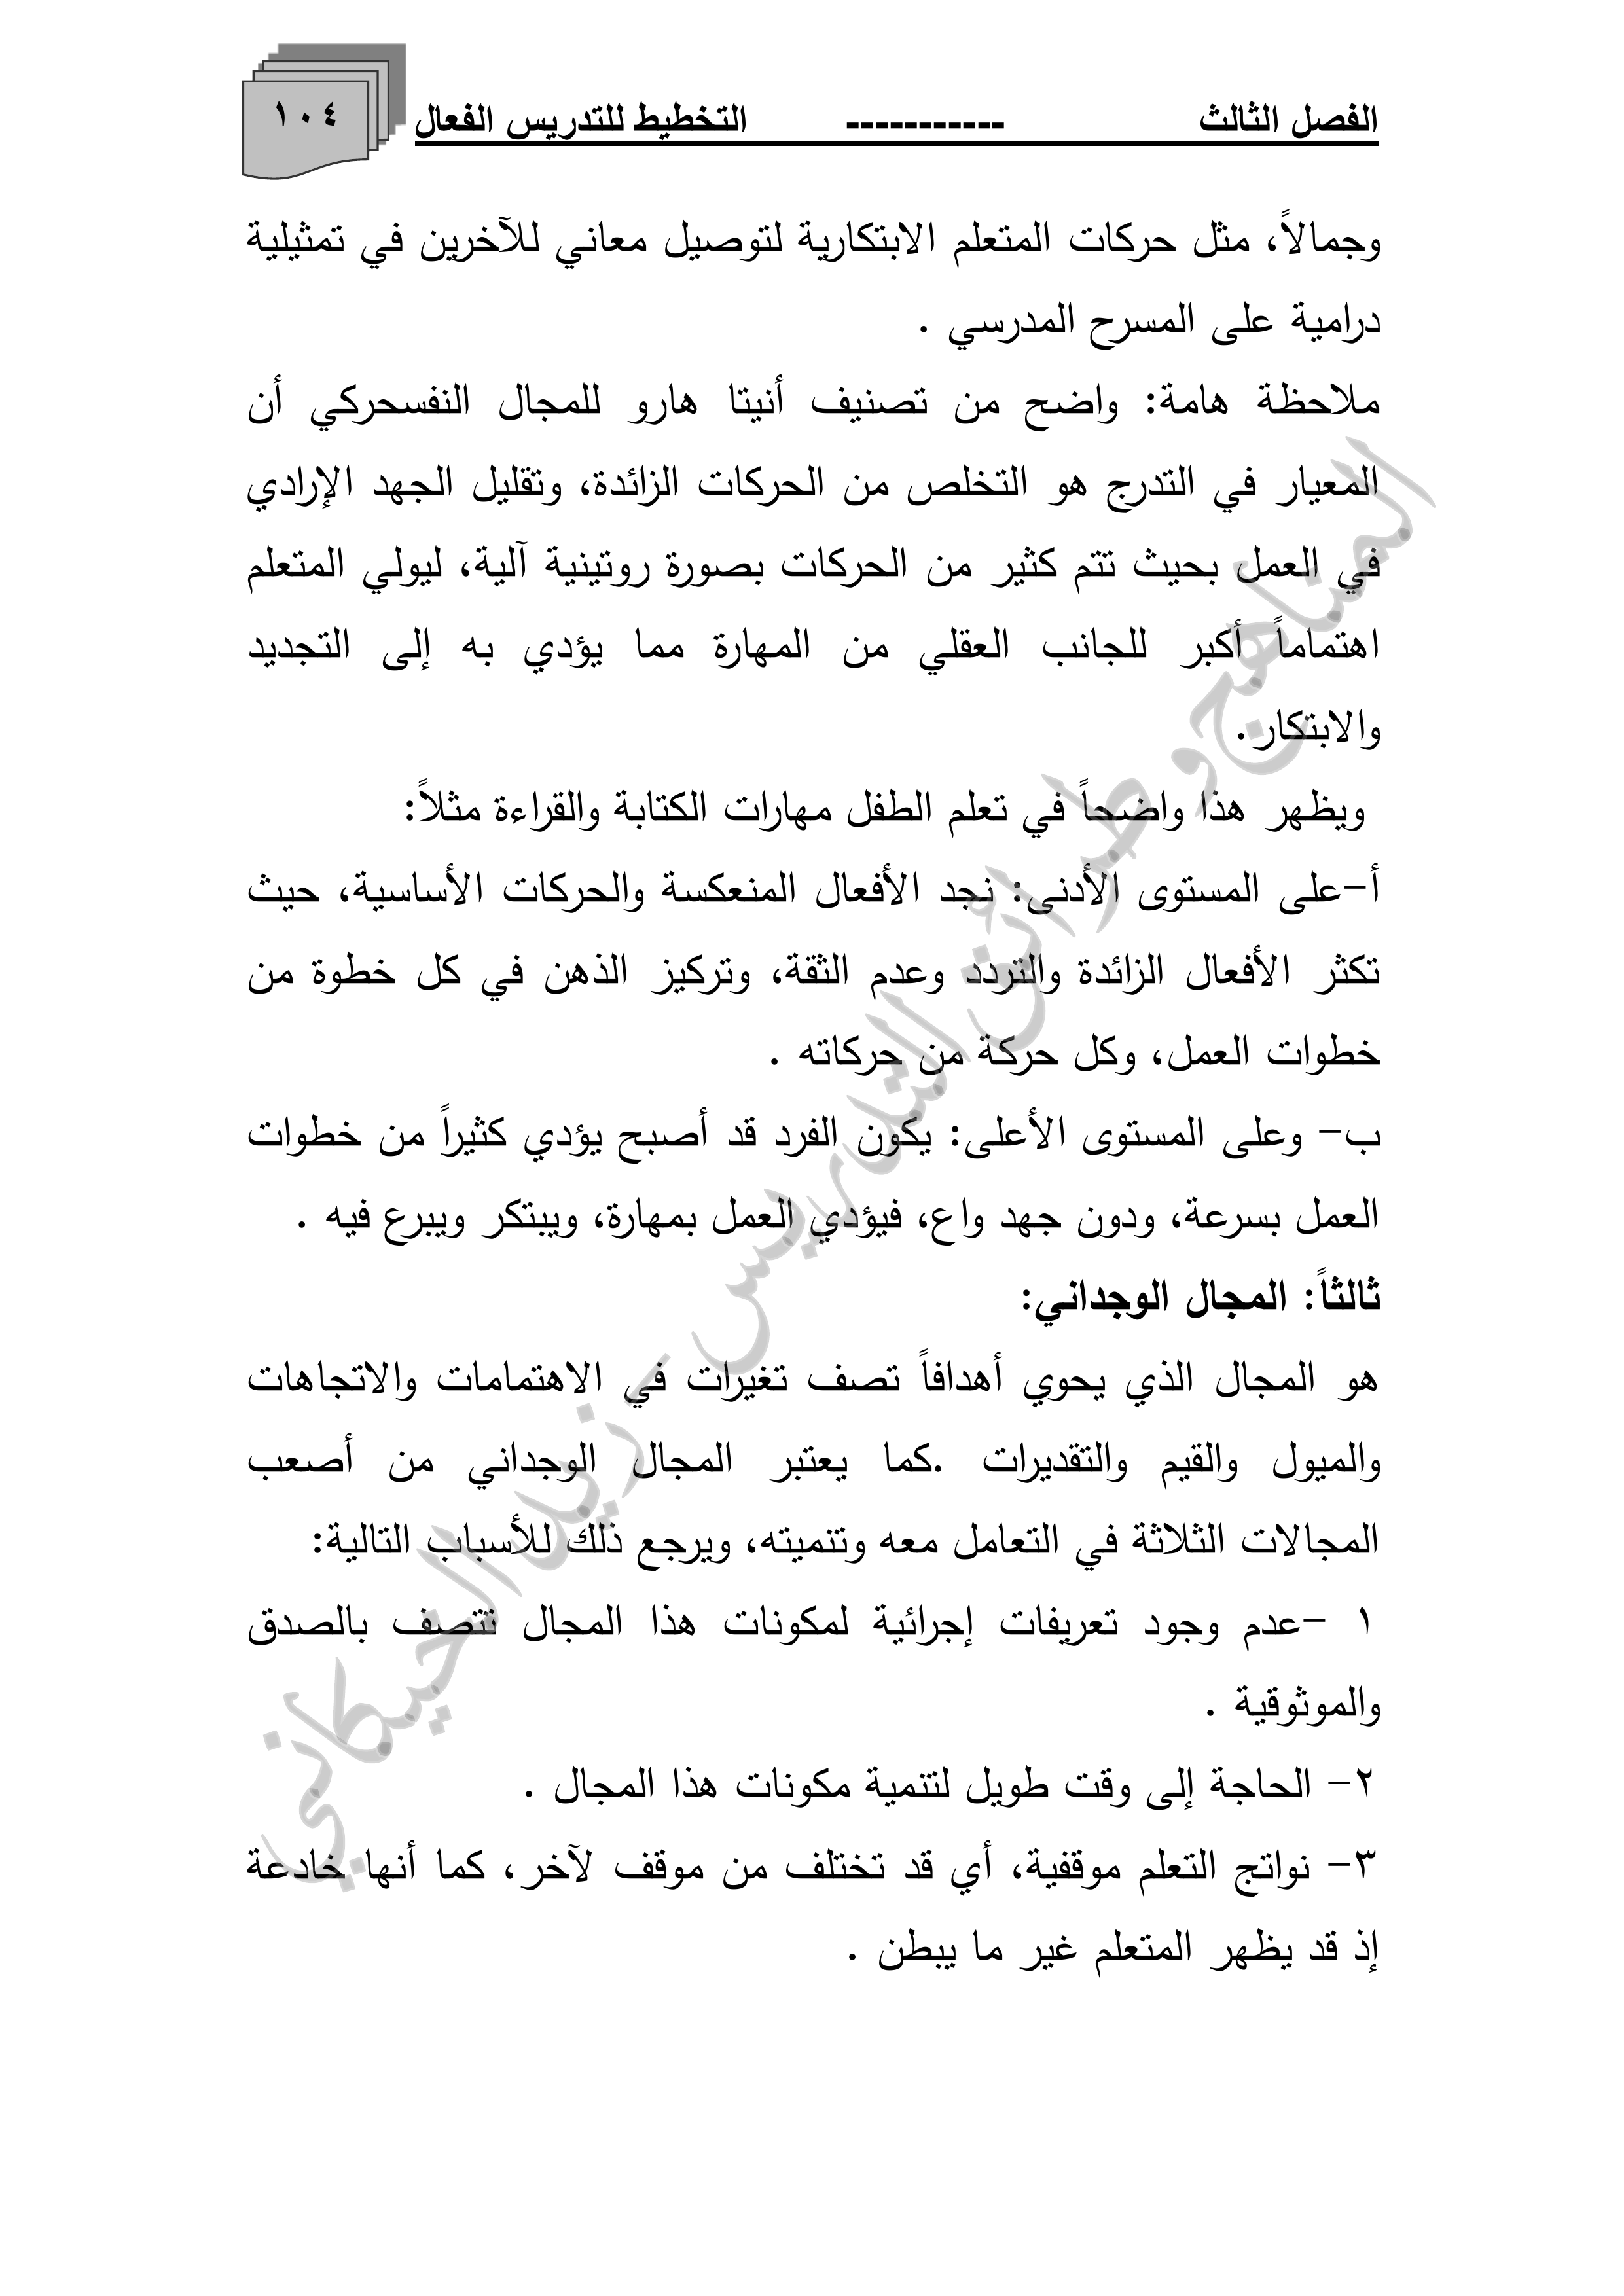 الفصل الثالث ----------- التخطيط للتدريس الفعال
١٠٤
وجمالاً، مثل حركات المتعلم الابتكارية لتوصيل معاني للآخرين في تمثيلية
درامية على المسرح المدرسي .
ملاحظة هامة: واضح من تصنيف أنيتا هارو للمجال النفسحركي أن
المعيار في التدرج هو التخلص من الحركات الزائدة، وتقليل الجهد الإرادي
في العمل بحيث تتم كثير من الحركات بصورة روتينية آلية، ليولي المتعلم
اهتماماً أكبر للجانب العقلي من المهارة مما يؤدي به إلى التجديد
والابتكار.
ويظهر هذا واضحاً في تعلم الطفل مهارات الكتابة والقراءة مثلاً:
أ-على المستوى الأدنى: نجد الأفعال المنعكسة والحركات الأساسية، حيث
تكثر الأفعال الزائدة والتردد وعدم الثقة، وتركيز الذهن في كل خطوة من
خطوات العمل، وكل حركة من حركاته .
ب- وعلى المستوى الأعلى: يكون الفرد قد أصبح يؤدي كثيراً من خطوات
العمل بسرعة، ودون جهد واع، فيؤدي العمل بمهارة، ويبتكر ويبرع فيه .
ثالثاً: المجال الوجداني:
هو المجال الذي يحوي أهدافاً تصف تغيرات في الاهتمامات والاتجاهات
والميول والقيم والتقديرات .كما يعتبر المجال الوجداني من أصعب
المجالات الثلاثة في التعامل معه وتنميته، ويرجع ذلك للأسباب التالية:
١ -عدم وجود تعريفات إجرائية لمكونات هذا المجال تتصف بالصدق
والموثوقية .
٢- الحاجة إلى وقت طويل لتنمية مكونات هذا المجال .
٣- نواتج التعلم موقفية، أي قد تختلف من موقف لآخر، كما أنها خادعة
إذ قد يظهر المتعلم غير ما يبطن .
المناهج وطرائق التدريس - زيد الخيكاني